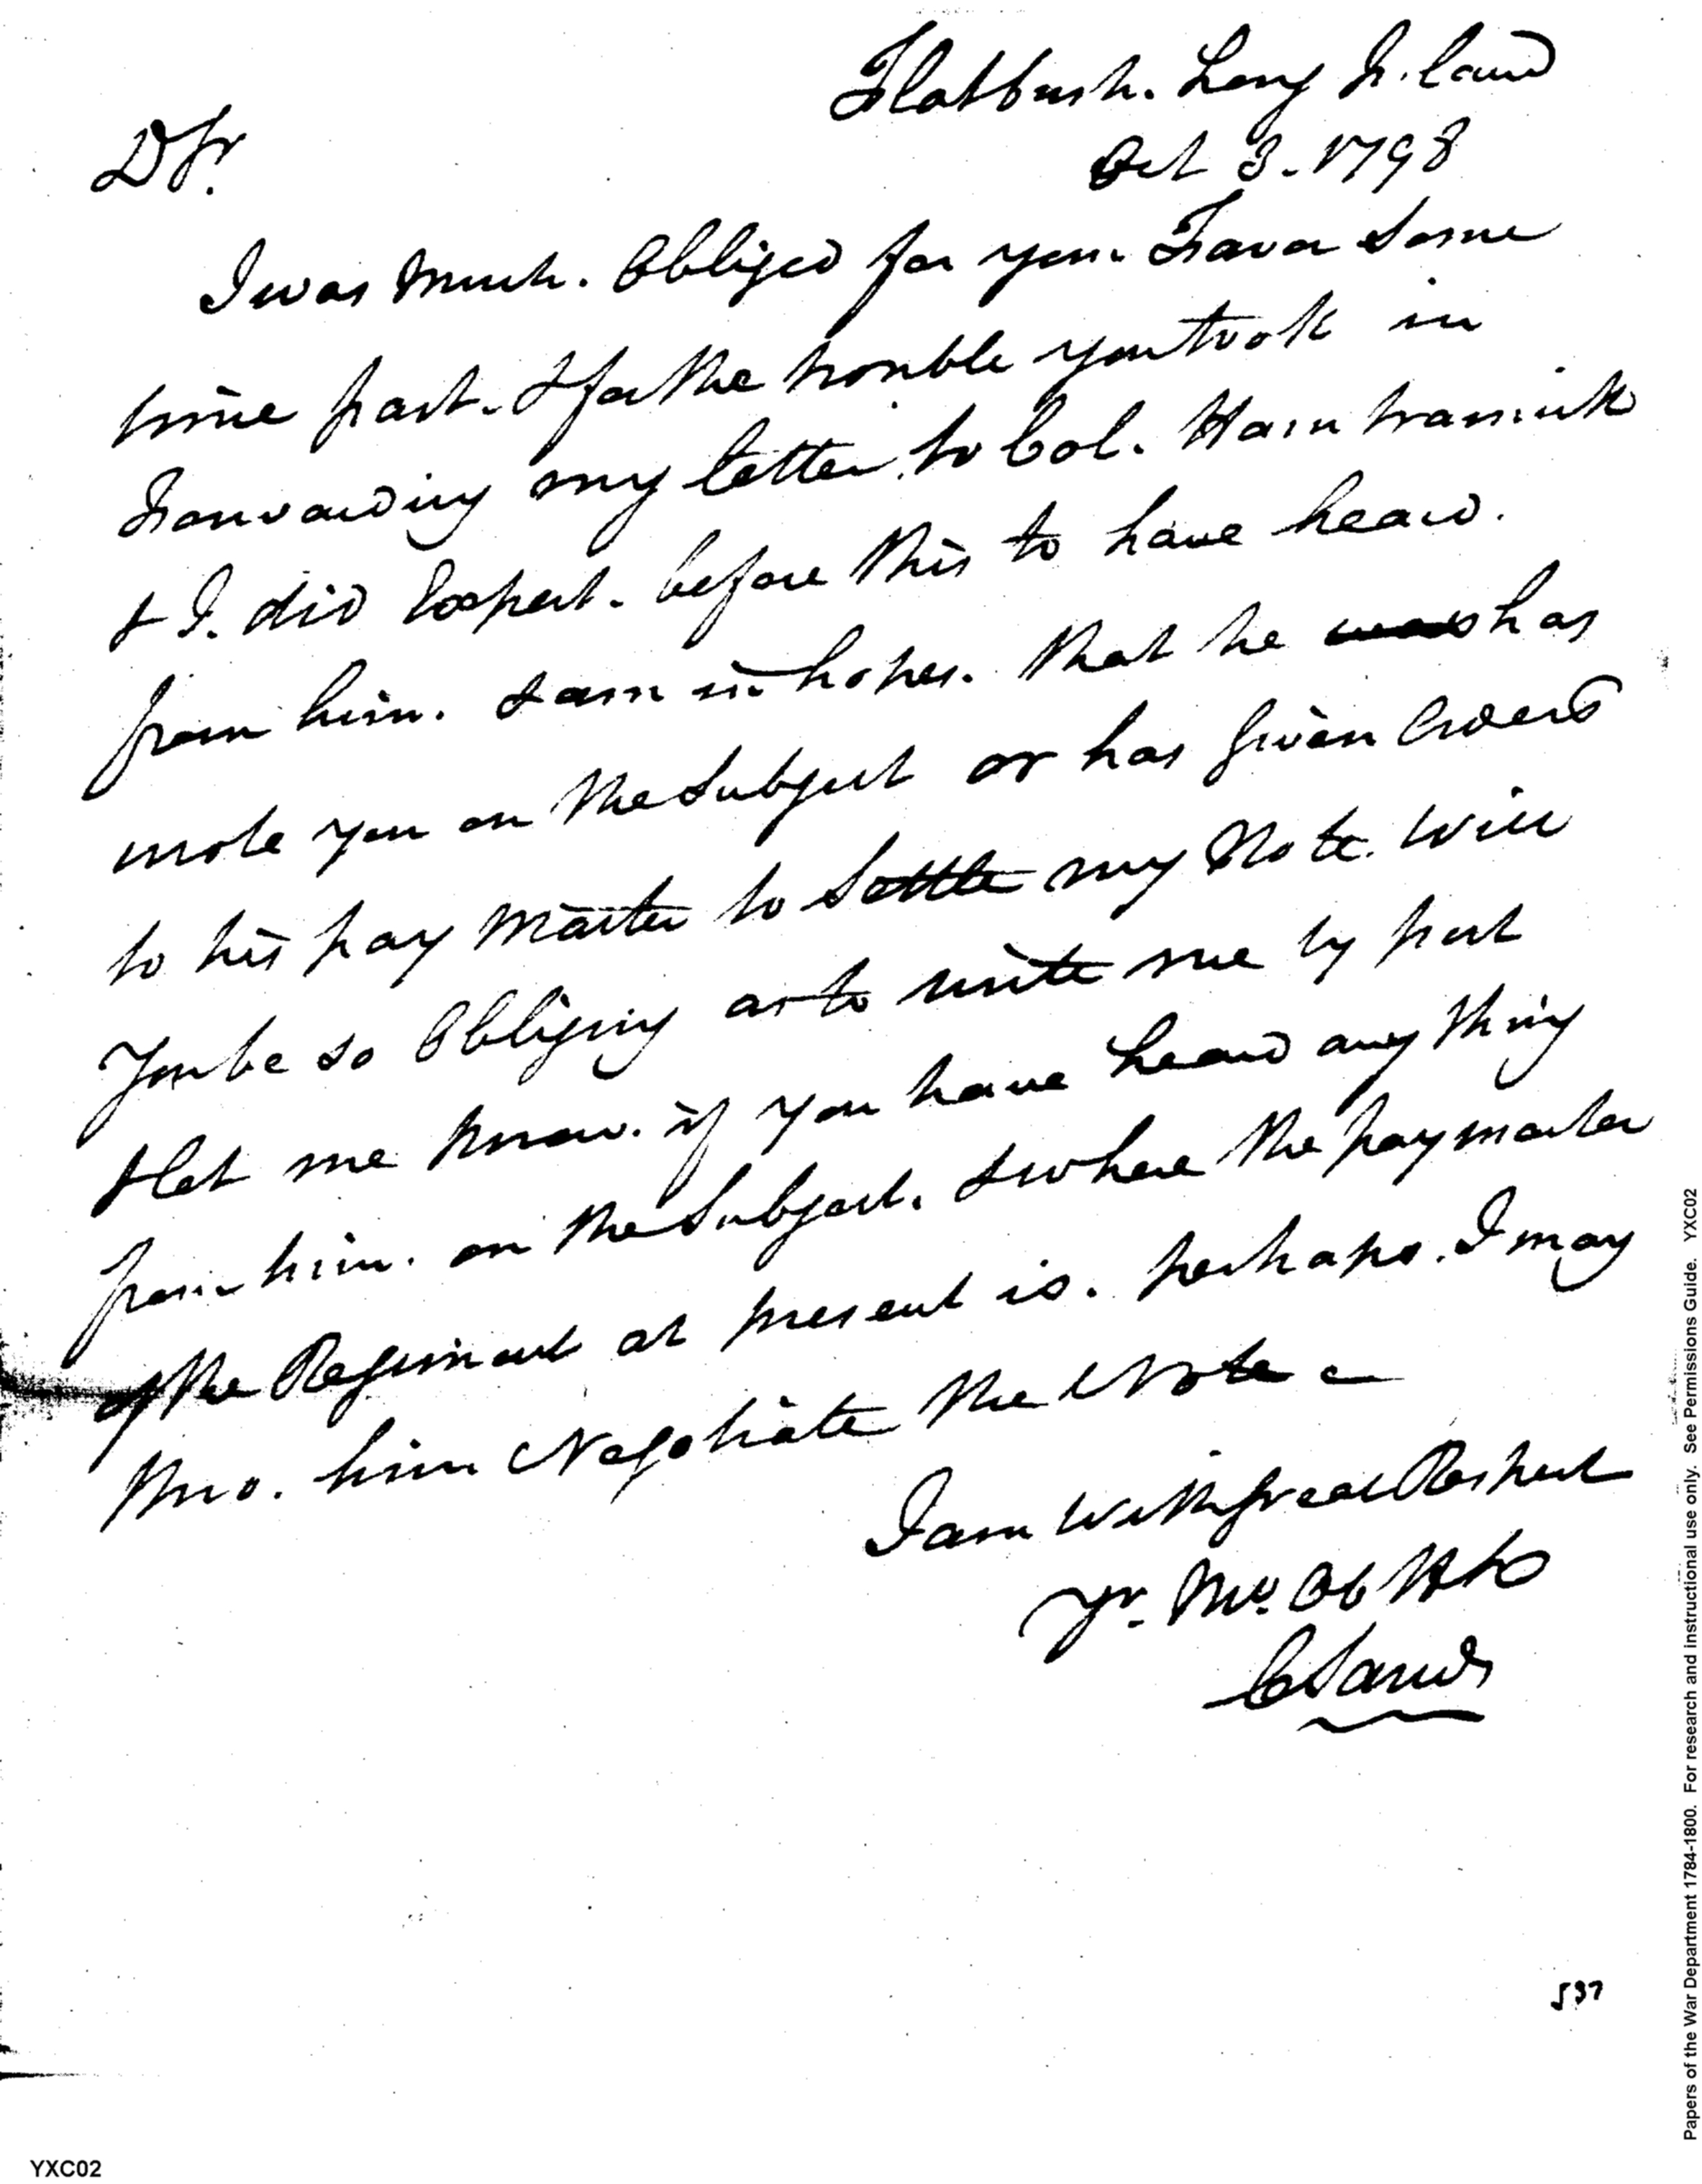 Flatbush. Long Island
Oct 3. 1798
D Sr.
I was Much. Obliged for your Favor Some
time past. & for the trouble you took in
Forwarding my letter to Col. Hamtramick
& I. did Expect. before this to have heard.
from him. & am in hopes. that he was has
wrote you on the Subject or has given Orders
to his pay Master to Settle my Note. Will
You be so Obliging as to write me by post
& let me know. if you have heard any thing
from him. on the Subject. & where the paymaster
of the Regiment at present is. perhaps. I may
thro. him Negotiate the Note
I am with great Respect
Yr. Mo. Ob Hb
C Sands
537
YXC02
Papers of the War Department 1784-1800. For research and instructional use only. See Permissions Guide. YXC02